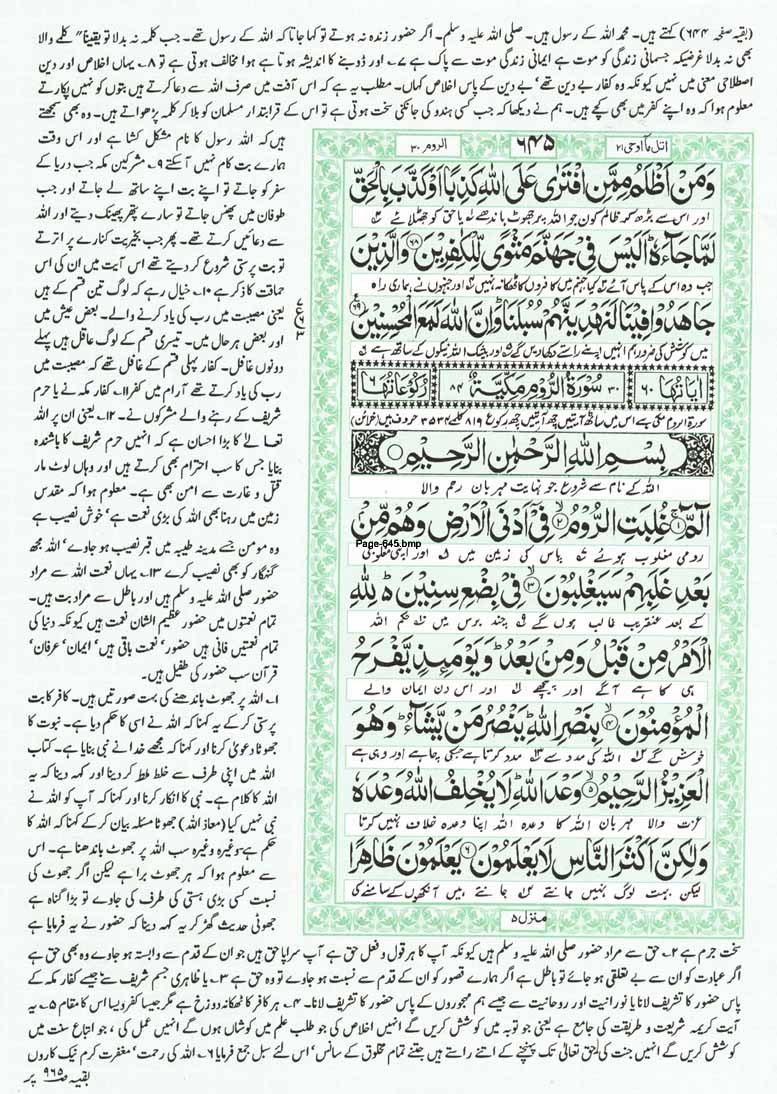 (بقیہ صفحہ ۶۴۴) کہتے ہیں۔ محمد اللہ کے رسول ہیں۔ صلی اللہ علیہ وسلم۔ اگر حضور زندہ نہ ہوتے تو کہا جاتا کہ اللہ کے رسول تھے۔ جب کلمہ نہ بدلا تو یقیناً" کلمے والا
بھی نہ بدلا غرضیکہ جسمانی زندگی کو موت ہے ایمانی زندگی موت سے پاک ہے ۷۔ اور ڈوبنے کا اندیشہ ہوتا ہے ہوا مخالف ہوتی ہے تو ۸۔ یہاں اخلاص اور دین
اصطلاحی معنی میں نہیں کیونکہ وہ کفار بے دین تھے' بے دین کے پاس اخلاص کہاں۔ مطلب یہ ہے کہ اس آفت میں صرف اللہ سے دعا کرتے ہیں بتوں کو نہیں پکارتے
معلوم ہوا کہ وہ اپنے کفر میں بھی کچے ہیں۔ ہم نے دیکھا کہ جب کسی ہندو کی جانکنی سخت ہوتی ہے تو اس کے قرابتدار مسلمان کو بلا کر کلمہ پڑھواتے ہیں۔ وہ بھی سمجھتے
ہیں کہ اللہ رسول کا نام مشکل کشا ہے اور اس وقت
ہمارے بت کام نہیں آسکتے ۹۔ مشرکین مکہ جب دریا کے
سفر کو جاتے تو اپنے بت اپنے ساتھ لے جاتے اور جب
طوفان میں پھنس جاتے تو سارے پتھر پھینک دیتے اور اللہ
سے دعائیں کرتے تھے۔ پھر جب بخیریت کنارے پر اترتے
تو بت پرستی شروع کر دیتے تھے اس آیت میں ان کی اس
حماقت کا ذکر ہے ۱۰۔ خیال رہے کہ لوگ تین قسم کے ہیں
یعنی مصیبت میں رب کی یاد کرنے والے۔ بعض عیش میں
اور بعض ہر حال میں۔ تیسری قسم کے لوگ عاقل ہیں پہلے
دونوں غافل۔ کفار پہلی قسم کے غافل تھے کہ مصیبت میں
رب کی یاد کرتے تھے آرام میں کفر ۱۱۔ کفار مکہ نے یا حرم
شریف کے رہنے والے مشرکوں نے۔ ۱۲۔ یعنی ان پر اللہ
تعالےٰ کا بڑا احسان ہے کہ انہیں حرم شریف کا باشندہ
بنایا جس کا سب احترام بھی کرتے ہیں اور وہاں لوٹ مار
قتل و غارت سے امن بھی ہے۔ معلوم ہوا کہ مقدس
زمین میں رہنا بھی اللہ کی بڑی نعمت ہے' خوش نصیب ہے
وہ مومن جسے مدینہ طیبہ میں قبر نصیب ہو جاوے' اللہ مجھ
گنہگار کو بھی نصیب کرے ۱۳۔ یہاں نعمت اللہ سے مراد
حضور صلی اللہ علیہ وسلم ہیں اور باطل سے مراد بت ہیں۔
تمام نعمتوں میں حضور عظیم الشان نعمت ہیں کیونکہ دنیا کی
تمام نعمتیں فانی ہیں حضور' نعمت باقی ہیں' ایمان' عرفان'
قرآن سب حضور کی طفیل ہیں۔
۱۔ اللہ پر جھوٹ باندھنے کی بہت صورتیں ہیں۔ کافر کا بت
پرستی کر کے یہ کہنا کہ اللہ نے اسی کا حکم دیا ہے۔ نبوت کا
جھوٹا دعویٰ کرنا اور کہنا کہ مجھے خدا نے نبی بنایا ہے۔ کتاب
اللہ میں اپنی طرف سے خلط ملط کر دینا اور کہہ دینا کہ یہ
اللہ کا کلام ہے۔ نبی کا انکار کرنا اور کہنا کہ آپ کو اللہ نے
نبی نہیں کیا (معاذ اللہ) جھوٹا مسئلہ بیان کر کے کہنا کہ اللہ کا
حکم ہے وغیرہ وغیرہ سب اللہ پر جھوٹ باندھنا ہے۔ اس
سے معلوم ہوا کہ ہر جھوٹ برا ہے لیکن اگر جھوٹ کی
نسبت کسی بڑی ہستی کی طرف کی جاوے تو بڑا گناہ ہے
جھوٹی حدیث گھڑ کر یہ کہہ دینا کہ حضور نے یہ فرمایا ہے
اتل ما اوحی ۲۱ ۶۴۵ الروم ۳۰
وَمَنْ اَظْلَمُ مِمَّنِ افْتَرٰی عَلَی اللّٰهِ كَذِبًا اَوْ كَذَّبَ بِالْحَقِّ
اور اس سے بڑھ کر ظالم کون جو اللہ پر جھوٹ باندھے یا حق کو جھٹلائے
لَمَّا جَآءَهٗ اَلَیْسَ فِیْ جَهَنَّمَ مَثْوًی لِّلْكٰفِرِیْنَ ﴿۶۸﴾ وَالَّذِیْنَ
جب وہ اس کے پاس آئے کیا جہنم میں کافروں کا ٹھکانہ نہیں اور جنہوں نے ہماری راہ
جَاهَدُوْا فِیْنَا لَنَهْدِیَنَّهُمْ سُبُلَنَا وَاِنَّ اللّٰهَ لَمَعَ الْمُحْسِنِیْنَ ﴿۶۹﴾
میں کوشش کی ضرور ہم انہیں اپنے راستے دکھا دیں گے اور بیشک اللہ نیکوں کے ساتھ ہے
اٰیَاتُهَا ۶۰ ۳۰ سُوْرَةُ الرُّوْمِ مَكِّیَّةٌ ۸۴ رُكُوْعَاتُهَا ۶
سورۃ الروم مکی ہے اس میں ساٹھ آیتیں چھ رکوع ۸۱۹ کلمے ۳۵۳۴ حروف ہیں (خزائن)
بِسْمِ اللّٰهِ الرَّحْمٰنِ الرَّحِیْمِ
اللہ کے نام سے شروع جو نہایت مہربان رحم والا
الٓمّٓ ﴿۱﴾ غُلِبَتِ الرُّوْمُ ﴿۲﴾ فِیْۤ اَدْنَی الْاَرْضِ وَهُمْ مِّنْ
Page-645.bmp
رومی مغلوب ہوئے پاس کی زمین میں اور اپنی مغلوبی
بَعْدِ غَلَبِهِمْ سَیَغْلِبُوْنَ ﴿۳﴾ فِیْ بِضْعِ سِنِیْنَ لِلّٰهِ
کے بعد عنقریب غالب ہوں گے چند برس میں حکم اللہ
الْاَمْرُ مِنْ قَبْلُ وَمِنْ بَعْدُ وَیَوْمَئِذٍ یَّفْرَحُ
ہی کا ہے آگے اور پیچھے اور اس دن ایمان والے
الْمُؤْمِنُوْنَ ﴿۴﴾ بِنَصْرِ اللّٰهِ یَنْصُرُ مَنْ یَّشَآءُ وَهُوَ
خوش ہوں گے اللہ کی مدد سے مدد کرتا ہے جسکی چاہے اور وہی ہے
الْعَزِیْزُ الرَّحِیْمُ ﴿۵﴾ وَعْدَ اللّٰهِ لَا یُخْلِفُ اللّٰهُ وَعْدَهٗ
عزت والا مہربان اللہ کا وعدہ اللہ اپنا وعدہ خلاف نہیں کرتا
وَلٰكِنَّ اَكْثَرَ النَّاسِ لَا یَعْلَمُوْنَ ﴿۶﴾ یَعْلَمُوْنَ ظَاهِرًا
لیکن بہت لوگ نہیں جانتے جانتے ہیں آنکھوں کے سامنے کی
منزل ۵
سخت جرم ہے ۲۔ حق سے مراد حضور صلی اللہ علیہ وسلم ہیں کیونکہ آپ کا ہر قول و فعل حق ہے آپ سراپا حق ہیں جو ان کے قدم سے وابستہ ہو جاوے وہ بھی حق ہے
اگر عبادت کو ان سے بے تعلقی ہو جائے تو باطل ہے اگر ہمارے قصور کو ان کے قدم سے نسبت ہو جاوے تو وہ حق ہے ۳۔ یا ظاہری جسم شریف سے جیسے کفار مکہ کے
پاس حضور کا تشریف لانا یا نورانیت اور روحانیت سے جیسے ہم مہجوروں کے پاس حضور کا تشریف لانا۔ ۴۔ ہر کافر کا ٹھکانہ دوزخ ہے مگر جیسا کفر ویسا اس کا مقام ۵۔ یہ
آیت کریمہ شریعت و طریقت کی جامع ہے یعنی جو توبہ میں کوشش کریں گے انہیں اخلاص کی جو طلب علم میں کوشاں ہوں گے انہیں عمل کی، جو اتباع سنت میں
کوشش کریں گے انہیں جنت کی حق تعالٰی تک پہنچنے کے اتنے راستے ہیں جتنے تمام مخلوق کے سانس' اس لئے سبل جمع فرمایا ۶۔ اللہ کی رحمت' مغفرت کرم نیک کاروں
بقیہ ص ۹۶۵ پر